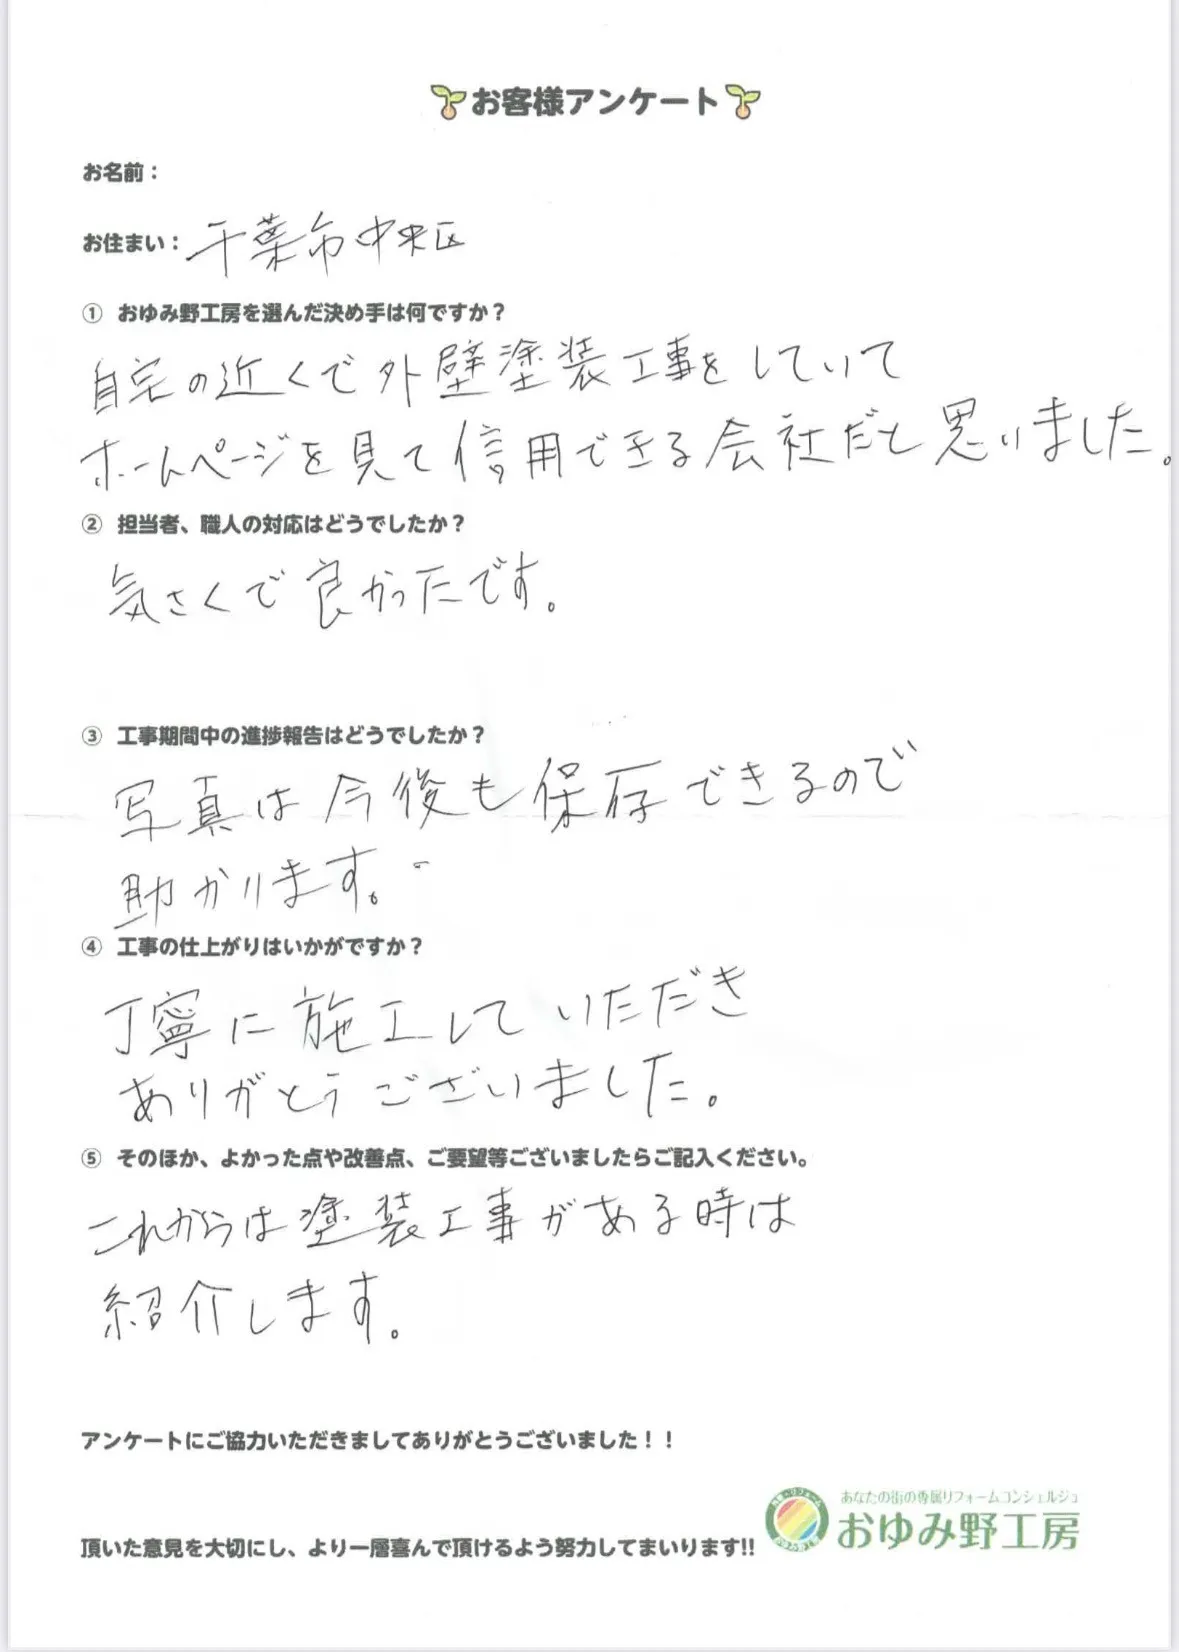 お客様アンケート
お名前：
お住まい：千葉市中央区
① おゆみ野工房を選んだ決め手は何ですか？
自宅の近くで外壁塗装工事をしていて
ホームページを見て信用できる会社だと思いました。
② 担当者、職人の対応はどうでしたか？
気さくで良かったです。
③ 工事期間中の進捗報告はどうでしたか？
写真は今後も保存できるので
助かります。
④ 工事の仕上がりはいかがですか？
丁寧に施工していただき
ありがとうございました。
⑤ そのほか、よかった点や改善点、ご要望等ございましたらご記入ください。
これからは塗装工事がある時は
紹介します。
アンケートにご協力いただきましてありがとうございました！！
あなたの街の専属リフォームコンシェルジュ
おゆみ野工房
頂いた意見を大切にし、より一層喜んで頂けるよう努力してまいります!!